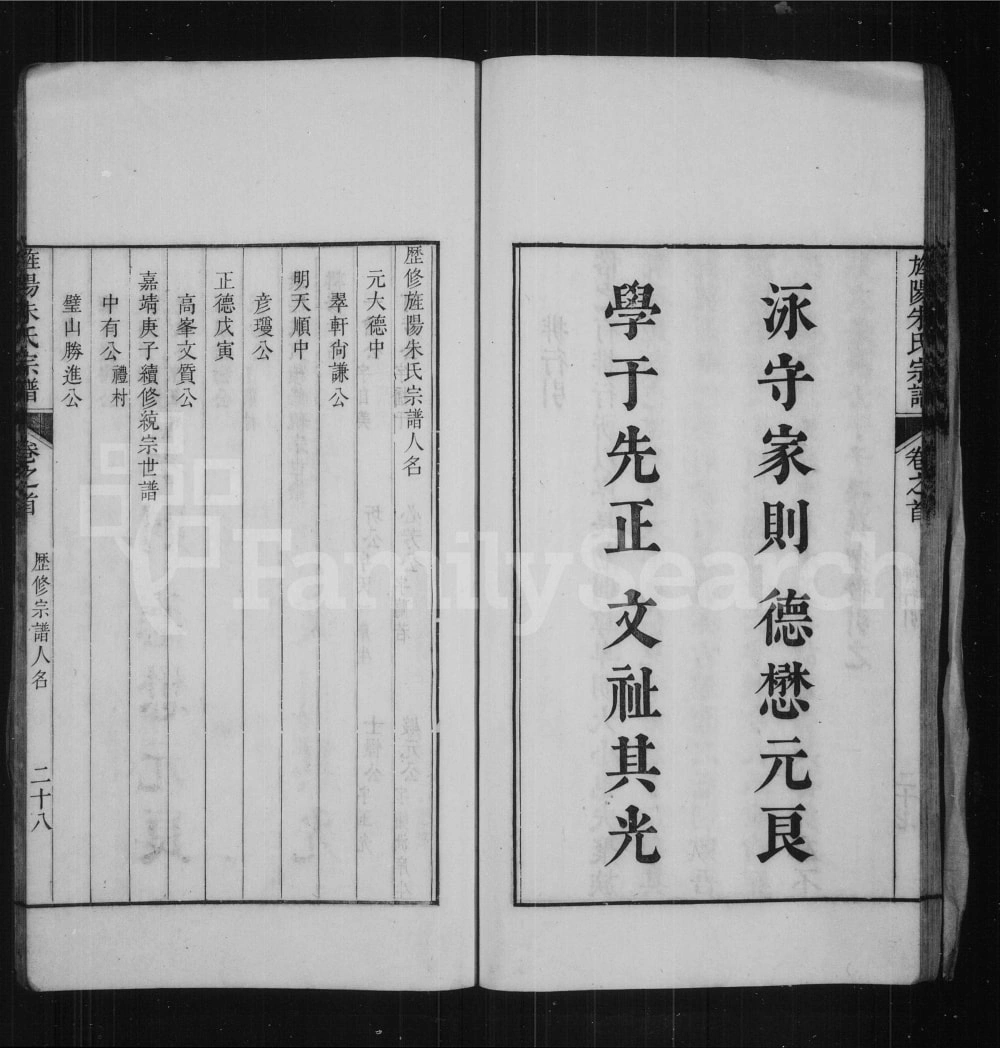 旌陽朱氏宗譜 卷之首
泳守家則 德懋元良
學于先正 文祉其光
歷修旌陽朱氏宗譜人名
元大德中
翠軒尙謙公
明天順中
彦瓊公
正德戊寅
高峯文質公
嘉靖庚子續修統宗世譜
中有公 禮村
璧山勝進公
旌陽朱氏宗譜 卷之首 歷修宗譜人名 二十八
FamilySearch